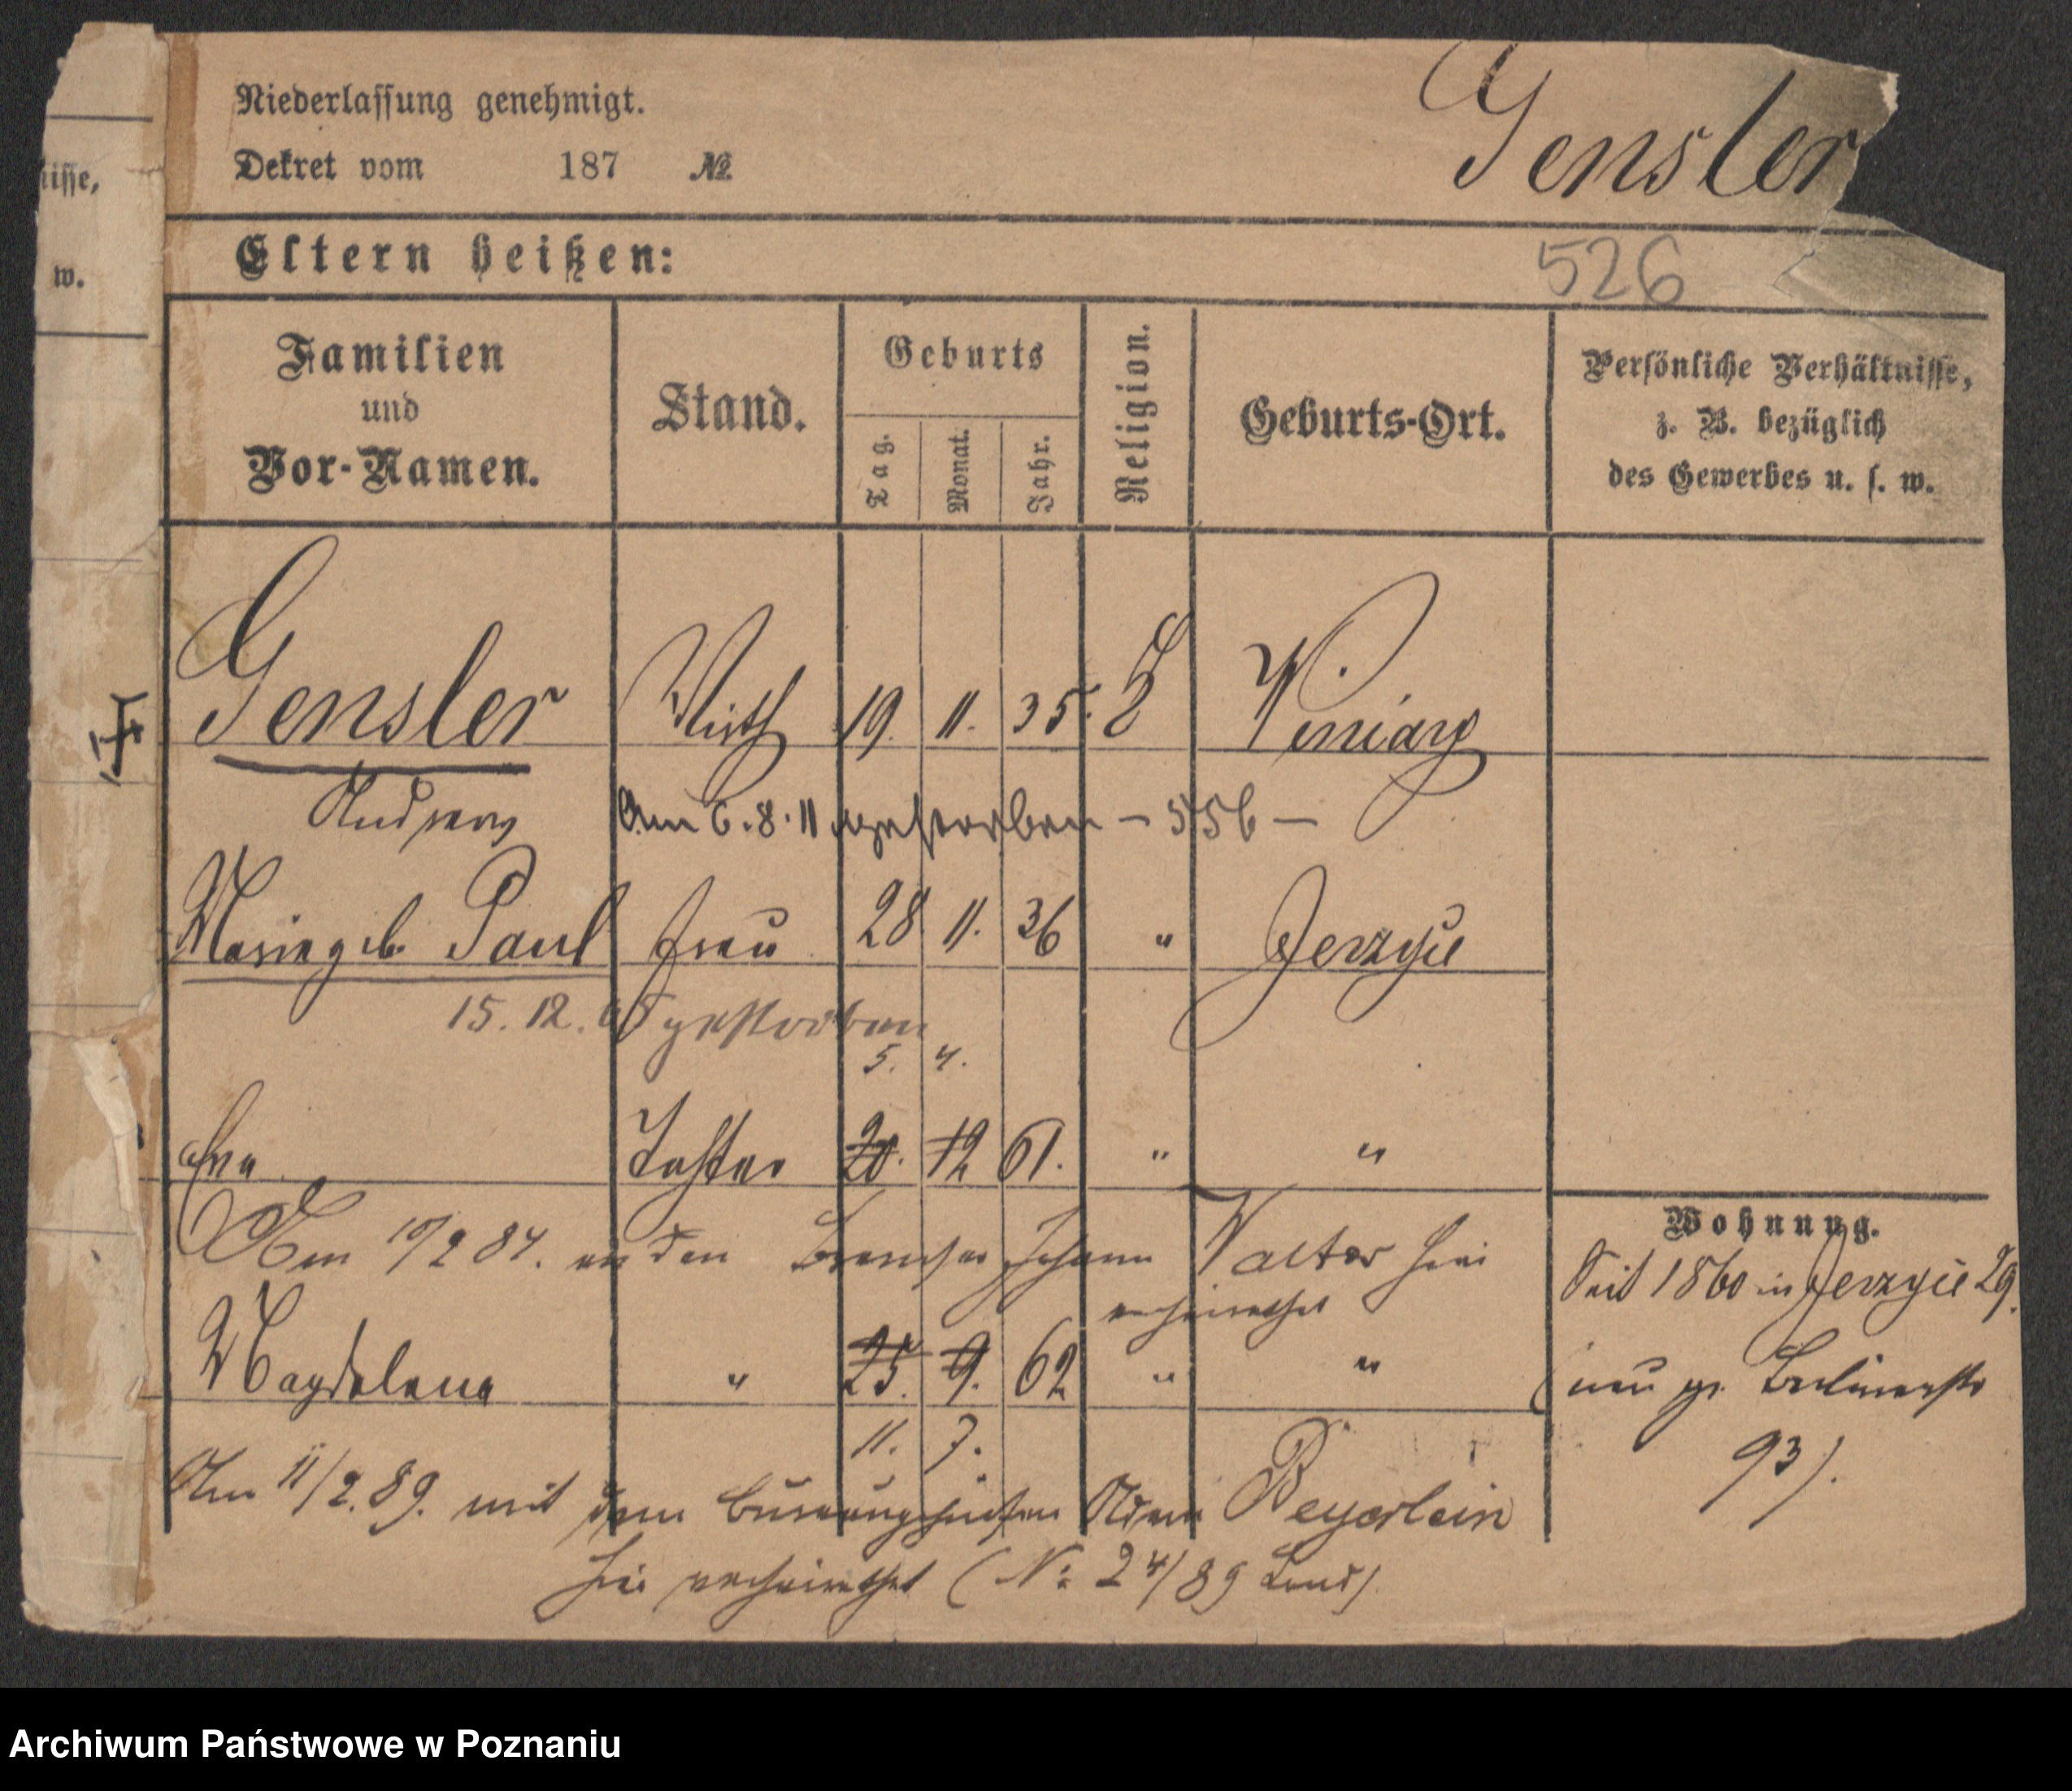 Niederlassung genehmigt.
Gensler
Dekret vom 187 №
Eltern heißen:
526
Familien und Vor-Namen.
Stand.
Geburts
Tag.
Monat.
Jahr.
Religion.
Geburts-Ort.
Persönliche Verhältnisse,
z. B. bezüglich
des Gewerbes u. s. w.
nisse,
w.
Gensler Wirth 19. 11. 35. Winiary
Andreas Am 6.8.11 gestorben – 556 –
Marie geb. Paul Frau 28. 11. 36 " Jerzyce
15.12. gestorben
5. 4.
Eva Tochter 20. 12 61. " "
Am 10/2 84. an den Johann Walter hier
verheirathet
Magdalena " 25. 9. 62 " "
11. 7.
Am 11/2.89. mit dem Adam Beyerlein
hier verheirathet (No 24/89 Land)
Wohnung.
Seit 1860 in Jerzyce 29.
(neu gr. Berlinerstr
93).
Archiwum Państwowe w Poznaniu